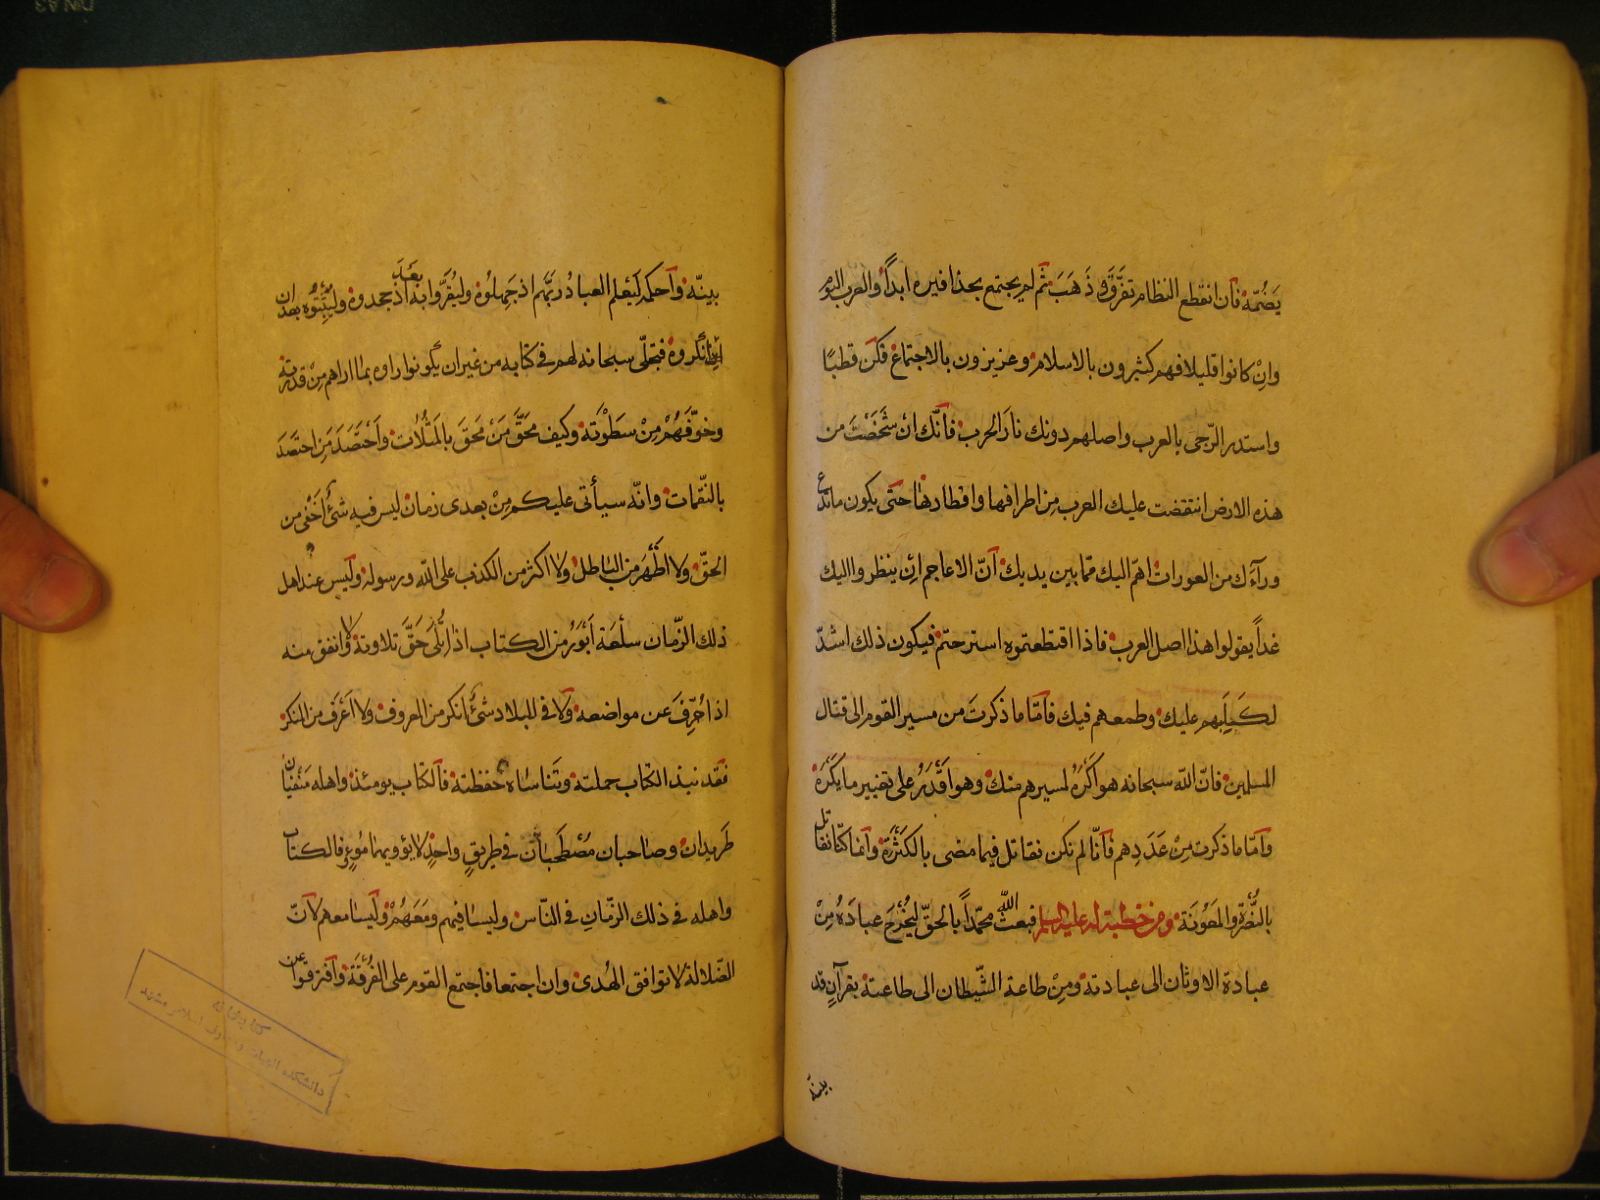 يَضُمّه فان انقطع النظام تفرَّقَ وذَهَبَ ثم لم يجتمع بحذافيره ابداً والعرب اليوم
وانْ كانوا قليلا فهم كثيرون بالاسلام وعزيزون بالاجتماع فكن قطبًا
واستدر الرّحى بالعرب واصلهم دونك نارَ الحرب فانّك ان شَخَصْتَ من
هذه الارض انتقضت عليك العرب مِن اطرافها واقطارها حتى يكون ما تدع
ورآءك من العورات اهمّ اليك ممّا بين يديك انّ الاعاجم ان ينظروا اليك
غداً يقولوا هذا اصل العرب فاذا اقتطعتموه استرحتم فيكون ذلك اشدّ
لكَلَبِهم عليك وطمعهم فيك فامّا ما ذكرتَ من مسير القوم الى قتال
المسلمين فانّ الله سبحانه هو اَكْرَهُ لمسيرهم منك وهو اَقْدَرُ على تغيير ما يَكْرَهُ
وامّا ما ذكرت مِنْ عَدَدِهم فانّا لم نكن نقاتل فيما مضى بالكَثْرَة وانما كنّا نقاتل
بالنُّصْرة والمَعُونَة ومن خطبة له عليه السلم فبعث الله محمّداً بالحقّ ليُخْرِجَ عبادَهُ مِنْ
عبادة الاوثان الى عبادته ومِنْ طاعة الشّيطان الى طاعته بقرآنٍ قد
بينه
بينّه واحكمه ليَعْلم العبادُ ربَّهم اذ جَهِلُوه وليُقرّوا به بَعْدَ اذ جحدوه وليُثْبِتُوه بعد ان
انكروه فتجلّى سبحانه لهم فى كتابه من غير ان يكونوا راوه بما اراهم مِنْ قدرته
وخوّفَهُمْ مِنْ سَطْوَته وكيف مَحَقَ مَنْ مَحَقَ بالمَثُلات واحْتَصَدَ مَن احتَصَدَ
بالنّقمات وانّه سيأتى عليكم مِنْ بعدى زمان ليس فيه شئ اَخْفى من
الحقّ ولا اَظْهَر من الباطل ولا اكثر من الكذب على الله ورسوله وليس عند اهل
ذلك الزّمان سلْعَة اَبْوَرُ من الكتاب اذا تُلِىَ حَقَّ تلاوته ولا انفق منه
اذا حُرِّفَ عن مواضعه ولا فى البلاد شئ انكر من المعروف ولا اَعْرَف من المنكر
فقد نبذ الكتاب حملته وتَناساه حفَظته فالكتاب يومئذ واهله مَنْفيّان
طَرِيدان وصاحبان مُصْطَحبان فى طريقٍ واحدٍ لا يؤويهما مُؤوٍ فالكتاب
واهله فى ذلك الزّمانِ فى النّاس وليسا فيهم ومَعَهُمْ وليسا معهم لانّ
الضّلالة لا توافق الهُدى وان اجتمعا فاجتمع القوم على الفُرْقَة وافترقوا عن
كتابخانه
دانشكده الهيات و معارف اسلامى مشهد
DIN A3